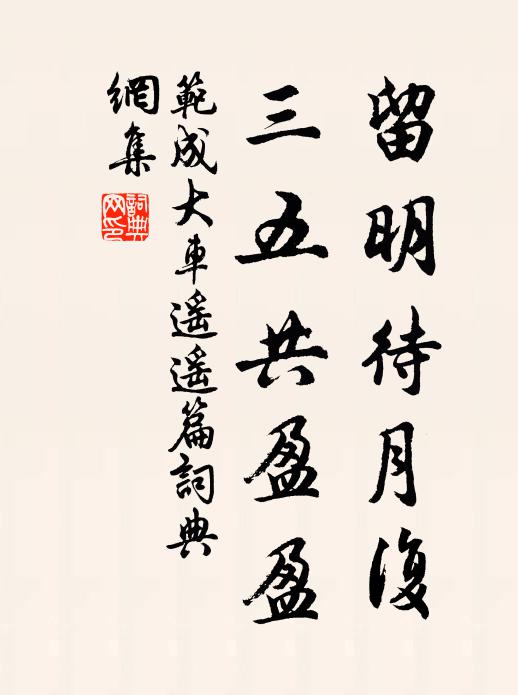 留明待月復
三五共盈盈
範成大車遥遥篇詞典
網集
詞典
网印